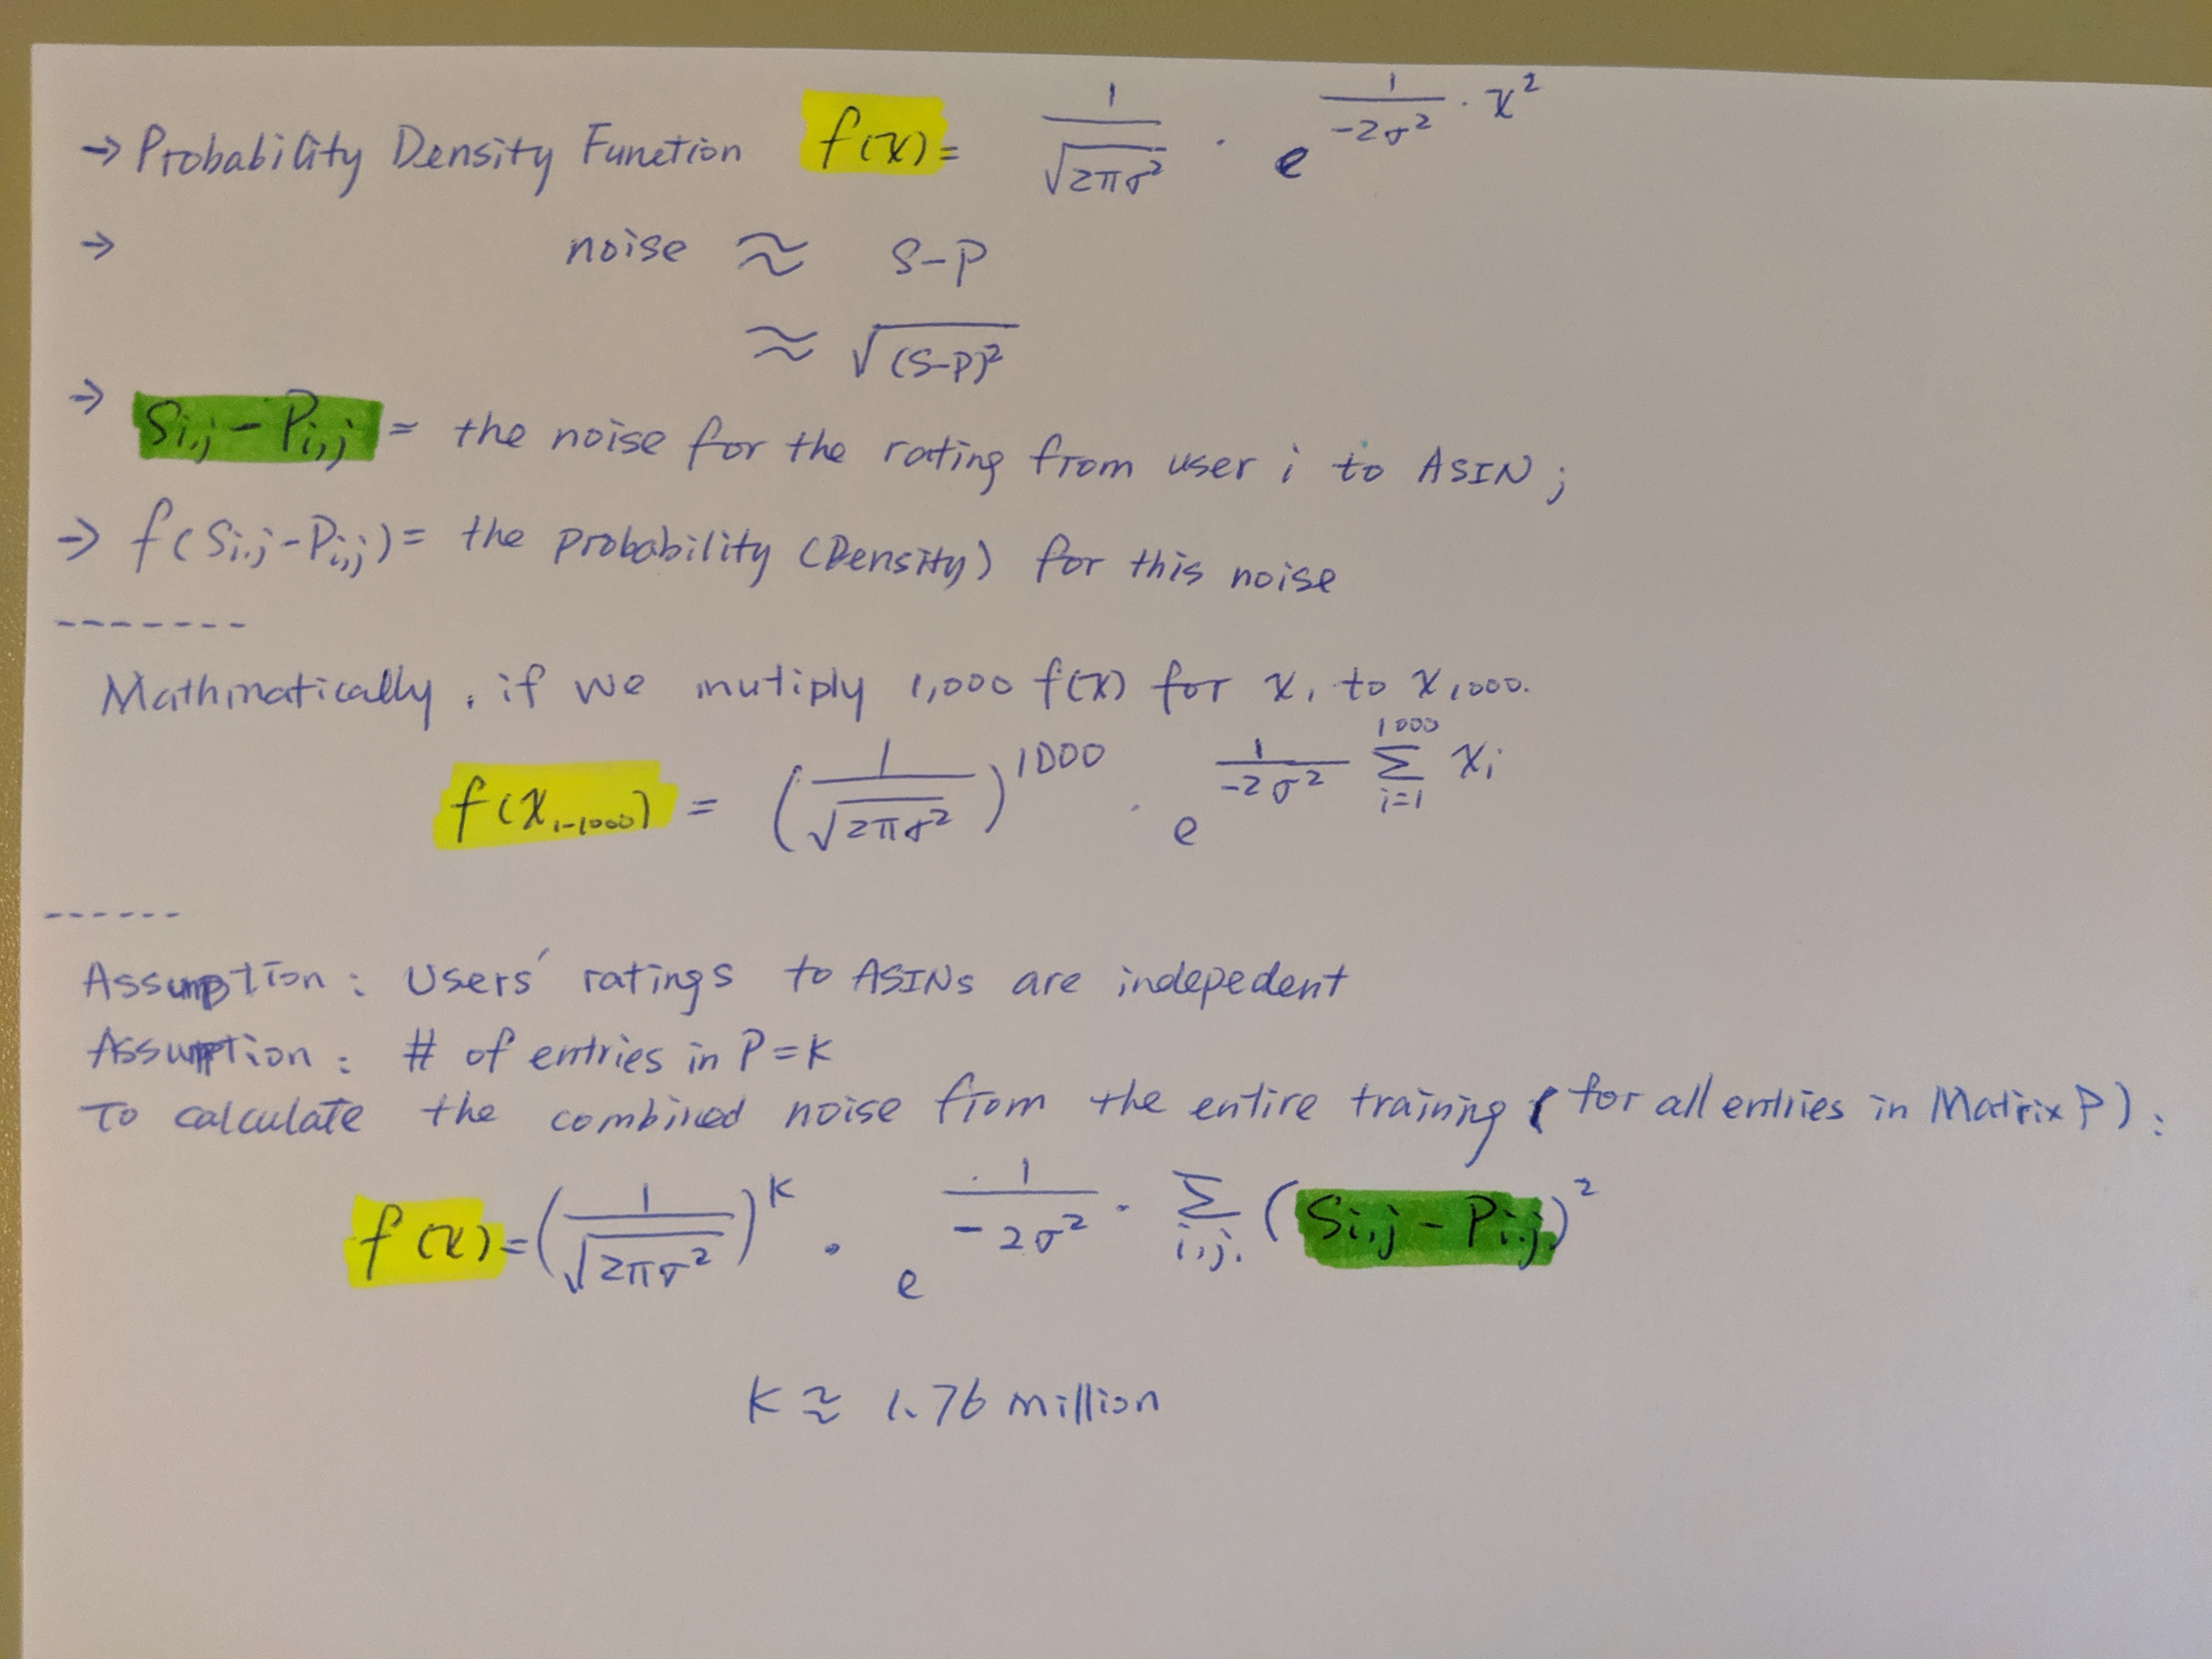 → Probability Density Function f(x) = 1/√(2πσ²) · e^(1/(-2σ²) · x²)
→ noise ≈ S-P
≈ √(S-P)²
→ Si,j - Pi,j = the noise for the rating from user i to ASIN j
→ f(Si,j - Pi,j) = the probability (Density) for this noise
-------
Mathmatically, if we mutiply 1,000 f(x) for x1 to x1000.
f(x1-1000) = (1/√(2πσ²))^1000 · e^(1/(-2σ²) Σ_{i=1}^{1000} xi)
-----
Assumption: users' ratings to ASINs are indepedent
Assumption: # of entries in P = K
To calculate the combined noise from the entire training (for all entries in Matrix P):
f(x) = (1/√(2πσ²))^K · e^(1/(-2σ²) · Σ_{i,j} (Si,j - Pi,j)²)
K ≈ 1.76 million